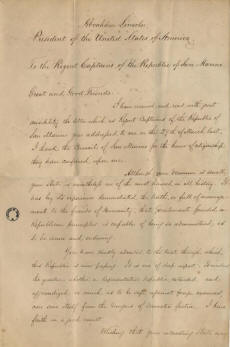 Abraham Lincoln
President of the United States of America
To the Regent Captains of the Republic of San Marino
Great and Good Friends
I have received and read with great
sensibility the letter which as Regent Captains of the Republic of
San Marino you addressed to me on the of March last.
I thank the Council of San Marino for the honor of citizenship
they have conferred upon me.
Although your dominion is small,
your State is nevertheless one of the most honored, in all history. It
has by its experience demonstrated the truth, so full of encourage-
ment to the friends of Humanity, that Government founded on
Republican principles is capable of being so administered, as
to be secure and enduring.
You have kindly adverted to the trial through which
this Republic is now passing. It is one of deep import. It involves
the question, whether a Representative republic, extended and
aggrandized so much as to be safe against foreign enemies
can save itself from the dangers of domestic faction. I have
faith in a good result.
Wishing that your interesting State may